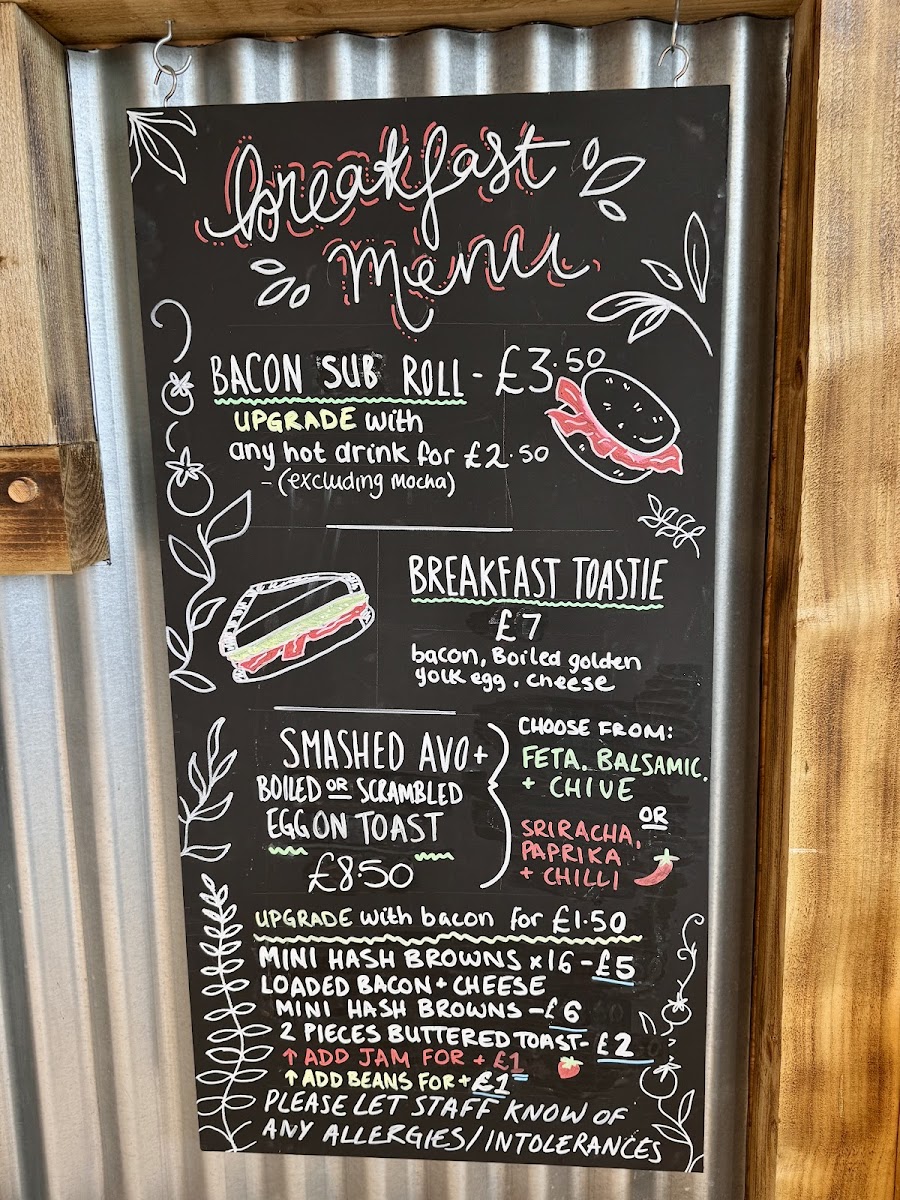 breakfast
menu
BACON SUB ROLL - £3.50
UPGRADE with
any hot drink for £2.50
- (excluding Mocha)
BREAKFAST TOASTIE
£7
bacon, Boiled golden
yolk egg, cheese
SMASHED AVO +
BOILED OR SCRAMBLED
EGG ON TOAST
£8.50
CHOOSE FROM:
FETA, BALSAMIC,
+ CHIVE
OR
SRIRACHA,
PAPRIKA
+ CHILLI
UPGRADE with bacon for £1.50
MINI HASH BROWNS x16 - £5
LOADED BACON + CHEESE
MINI HASH BROWNS - £6
2 PIECES BUTTERED TOAST - £2
↑ ADD JAM FOR + £1
↑ ADD BEANS FOR + £1
PLEASE LET STAFF KNOW OF
ANY ALLERGIES/INTOLERANCES